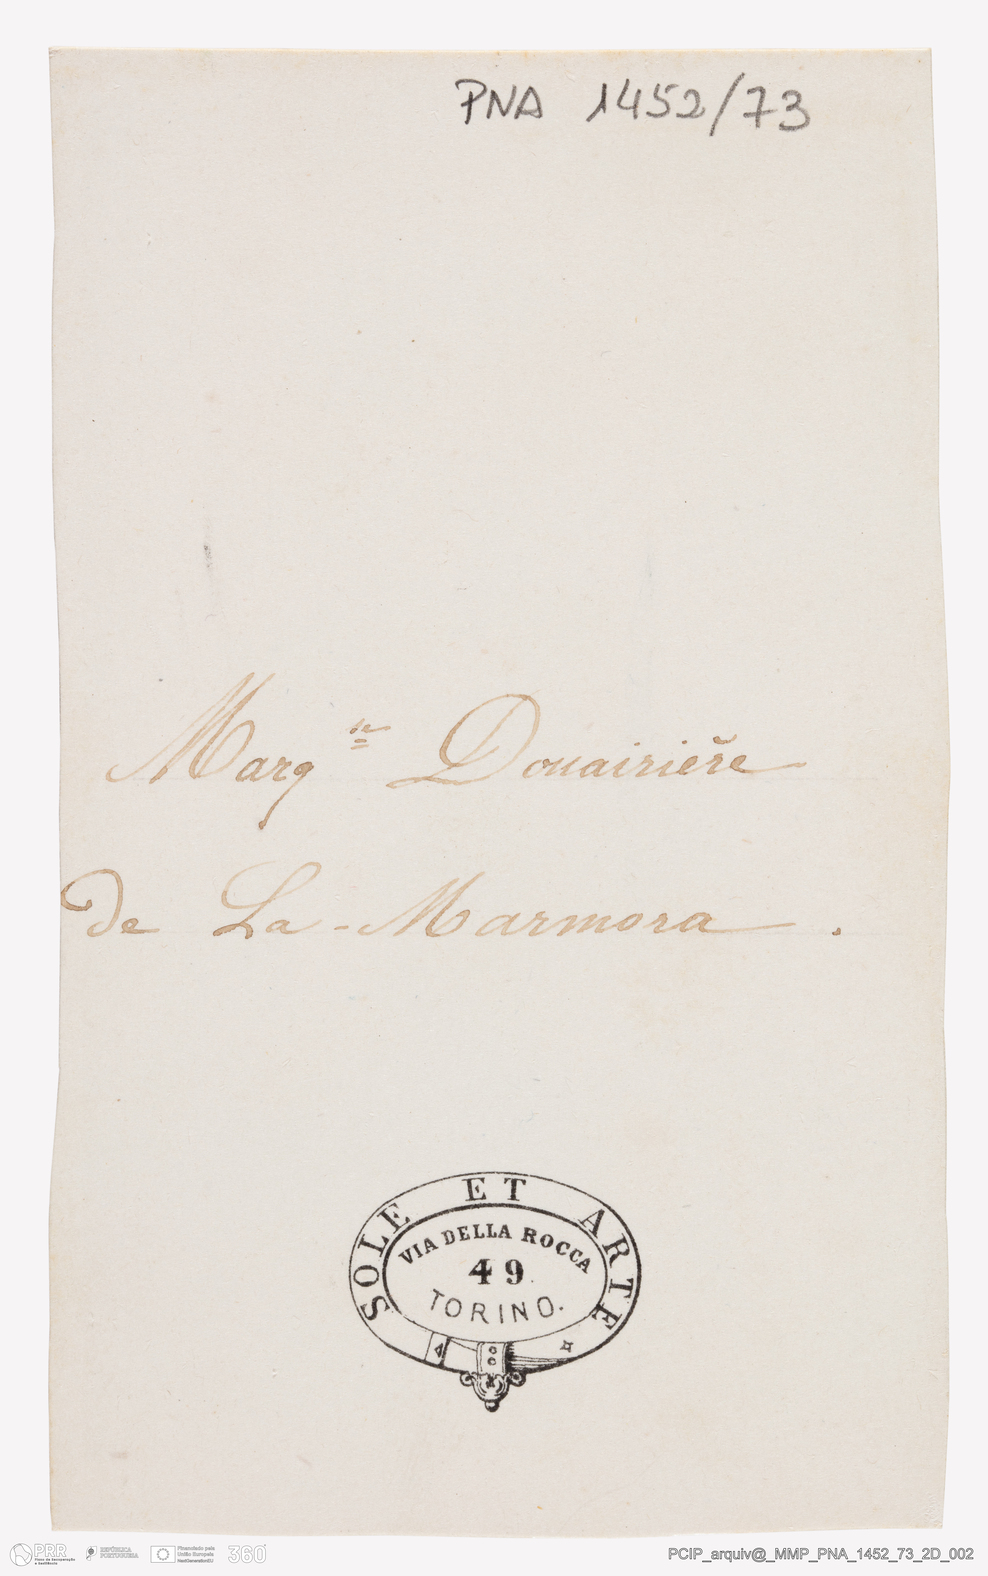 PNA 1452/73
Marq.se Douairière
de La-Marmora.
SOLE ET ARTE
VIA DELLA ROCCA
49
TORINO.
PRR
Plano de Recuperação
e Resiliência
REPÚBLICA
PORTUGUESA
Financiado pela
União Europeia
NextGenerationEU
360°
PCIP_arquiv@_MMP_PNA_1452_73_2D_002